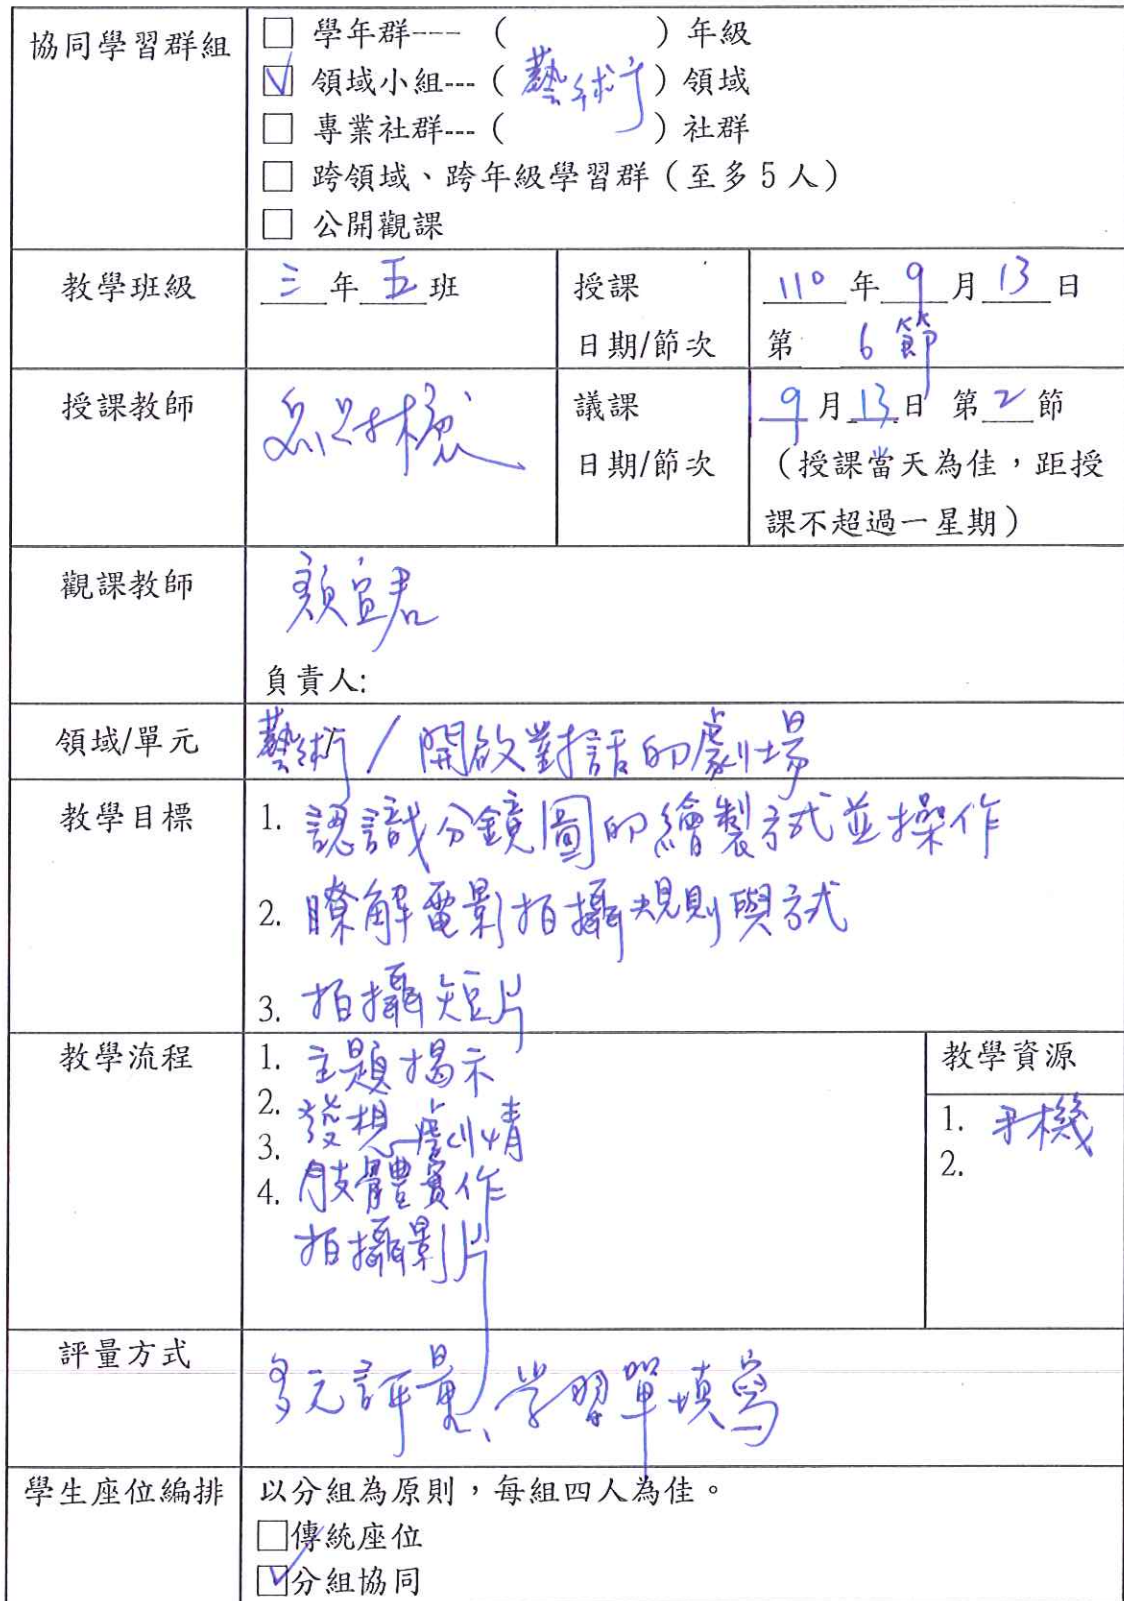 協同學習群組
□ 學年群--- (　　　) 年級
☑ 領域小組--- ( 藝術 ) 領域
□ 專業社群--- (　　　) 社群
□ 跨領域、跨年級學習群（至多5人）
□ 公開觀課
教學班級
三年五班
授課
日期/節次
110年9月13日
第 6節
授課教師
議課
日期/節次
9月13日 第2節
（授課當天為佳，距授
課不超過一星期）
觀課教師
顏宜君
負責人:
領域/單元
藝術/開啟對話的劇場
教學目標
1. 認識分鏡圖的繪製方式並操作
2. 瞭解電影拍攝規則與方式
3. 拍攝短片
教學流程
1. 主題揭示
2. 發想劇情
3.
4. 肢體實作
拍攝影片
教學資源
1. 手機
2.
評量方式
多元評量、学習單填寫
學生座位編排
以分組為原則，每組四人為佳。
□傳統座位
☑分組協同